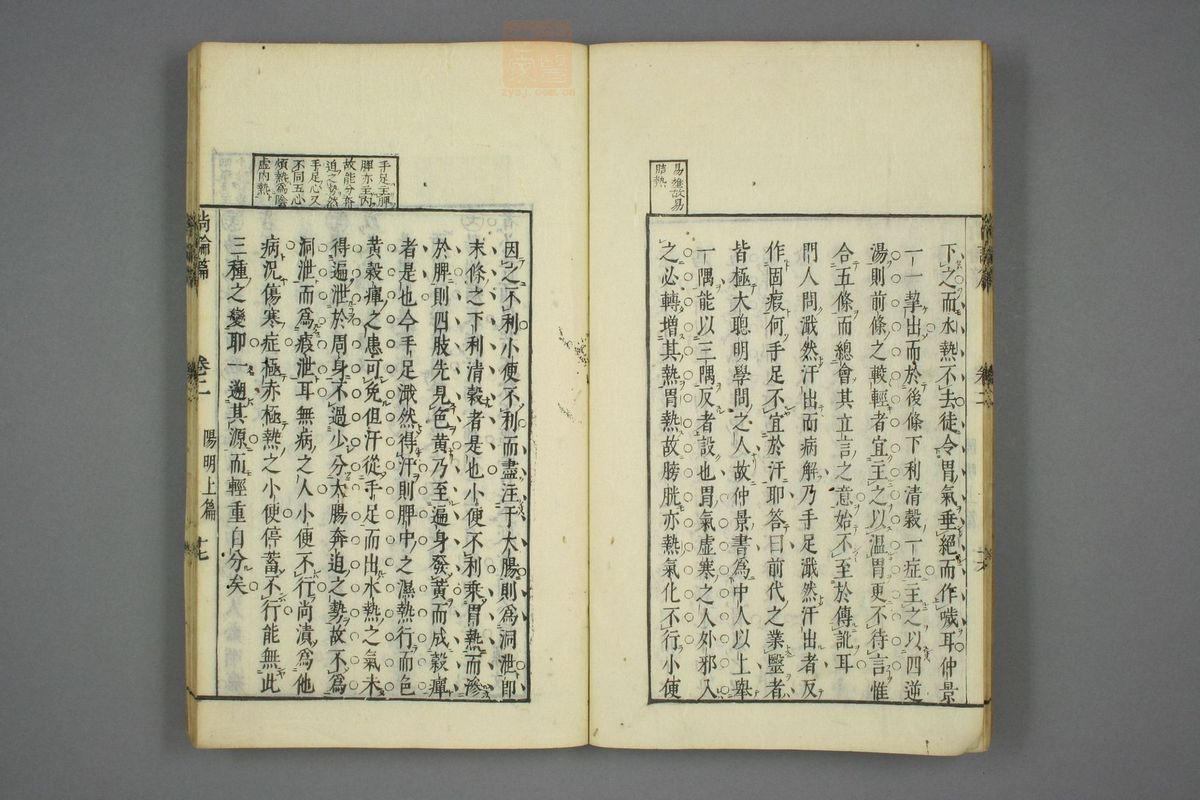 易雄故易
下之而水熱不去徒令胃氣垂絕而作噦耳仲景
一一挈出而於後條下利清穀一症主之以四逆
湯則前條之較輕者宜主之以溫胃更不待言惟
合五條而總會其立言之意始不至於傳訛耳
門人問濈然汗出而病解乃手足濈然汗出者反
作固瘕何手足不宜於汗耶答曰前代之業醫者
皆極大聰明學問之人故仲景書為中人以上舉
一隅能以三隅反者設也胃氣虛寒之人外邪入
之必轉增其熱胃熱故膀胱亦熱氣化不行小便
卷二
手足主脾
脾亦主內
故能分奔
迫之勢然
手足心又
不同五心
煩熱為陰
虛內熱
因之不利小便不利而盡注于大腸則為洞泄即
末條之下利清穀者是也小便不利乘胃熱而滲
於脾則四肢先見色黃乃至遍身發黃而成穀癉
者是也今手足濈然得汗則脾中之濕熱行而色
黃穀癉之患可免但汗從手足而出水熱之氣未
得遍泄於周身不過少分大腸奔迫之勢故不為
洞泄而為瘕泄耳無病之人小便不行尚漬為他
病況傷寒症極赤極熱之小便停蓄不行能無此
三種之變耶一遡其源而輕重自分矣
尚論篇
卷二
陽明上篇
十七
zysj.com.cn